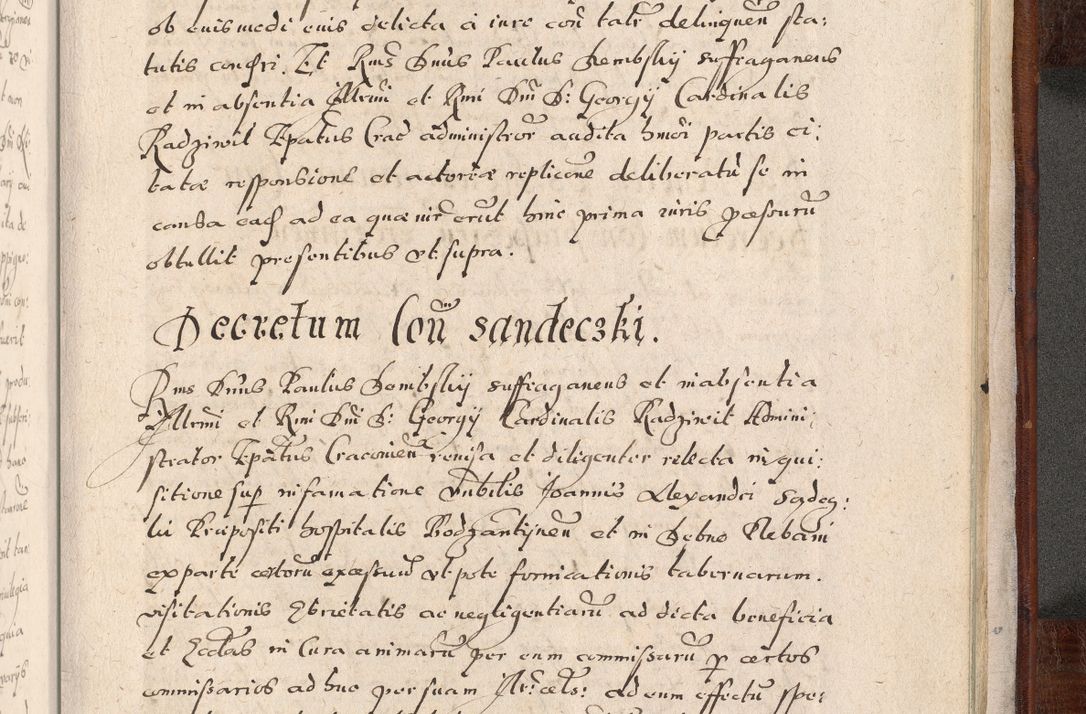 ob euismodi eius delicta a iure coñ taľr delinqueñ sta:
tutis conqri. Et Rms Dnus Paulus Dembskij suffraganeus
et in absentia Illrmi et Rmi Dm̃ D: Georgij Cardinalis
Radziwil Epatus Crac administror audita hm̃oi partis ci:
tatæ responsione et actoreæ replicone deliberatũ se in
causa eaq ad ea quæ iur erũt hinc prima iuris
obtullit presentibus ut supra.
Decretum Coñ sandeczki.
Rms Dnus Paulus Dembskij suffraganeus et in absentia
Illrmi et Rmi Dm̃ D: Georgij Cardinalis Radziwil Admini:
strator Epatus Cracovieñ revisa et diligenter relecta in qui:
sitione sup infamatione Vnbilis Joannis Alexandri Sądeg:
lii Præpositi hospitalis Bodzantijneñ et in Debno Plebani
ex parte certorũ excessuũ ut pote fornicationis tabernarum.
visitationis Ebrietatis ac negligentiarũ ad dicta beneficia
et Eccłas in Cura animarũ per eum commissarũ p certos
commissarios ad huc per suam Ill: cels: ad eum effectũ spe: